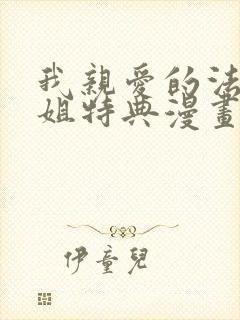 我親愛的法
姐特典漫畫
伊童兒